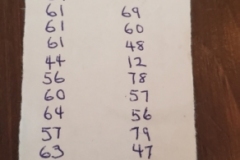 61 69
61 60
61 48
44 12
56 78
60 57
64 56
57 79
63 47